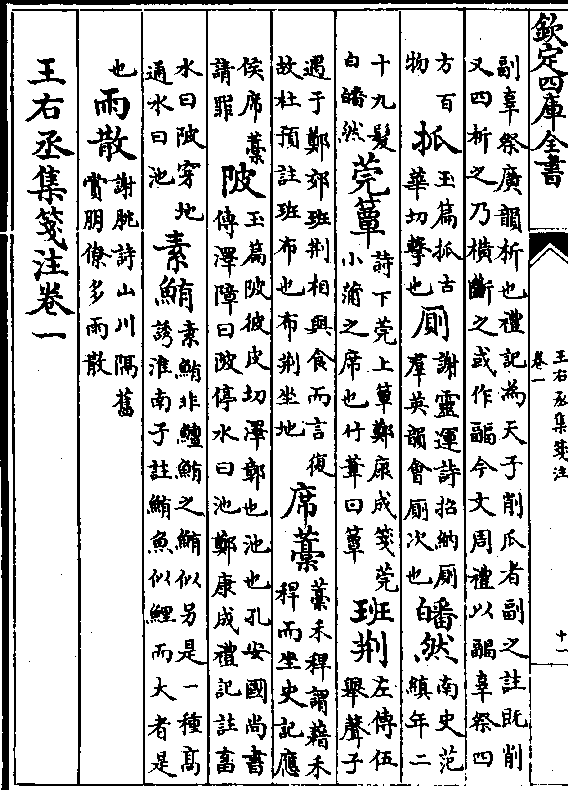 欽定四庫全書
王右丞集箋注
卷一
十一
副辜祭廣韻析也禮記為天子削瓜者副之註既削又四析之乃橫斷之或作疈今文周禮以疈辜祭四
方百物 㧓 玉篇㧓古華切擊也 厠 謝靈運詩招納厠羣英韻會厠次也 皤然 南史范縝年二
十九髮白皤然 莞簟 詩下莞上簟鄭康成箋莞小蒲之席也竹葦曰簟 班荆 左傳伍舉聲子
遇于鄭郊班荆相與食而言復故杜預註班布也布荆坐地 席藁 藁禾稈謂藉禾稈而坐史記應
侯席藁請罪 陂 玉篇陂彼皮切澤鄣也池也孔安國尚書傳澤障曰陂停水曰池鄭康成禮記註畜
水曰陂穿地通水曰池 素鮪 素鮪非鱣鮪之鮪似另是一種髙誘淮南子註鮪魚似鯉而大者是
也 雨散 謝朓詩山川隔舊賞朋僚多雨散
王右丞集箋注卷一